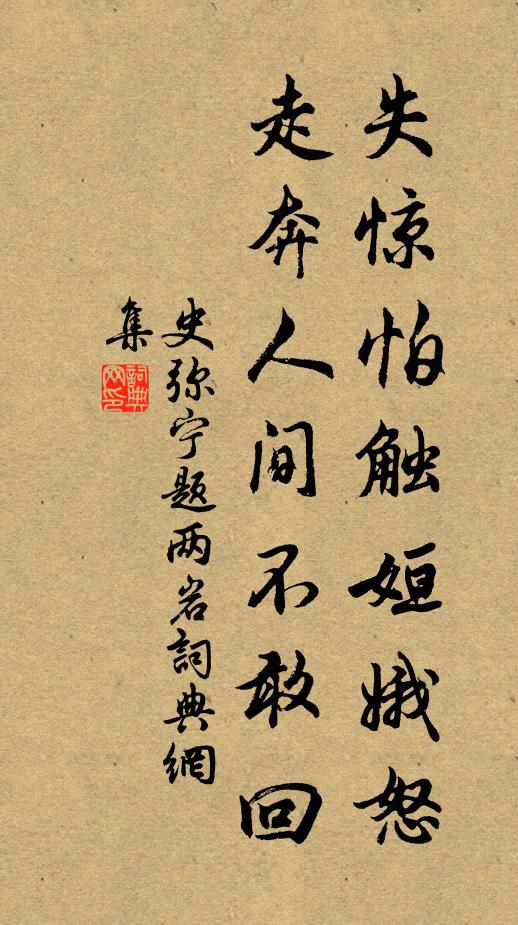 失惊怕触姮娥怒
走奔人间不敢回
史弥宁题两岩詞典網
集
詞典
网印